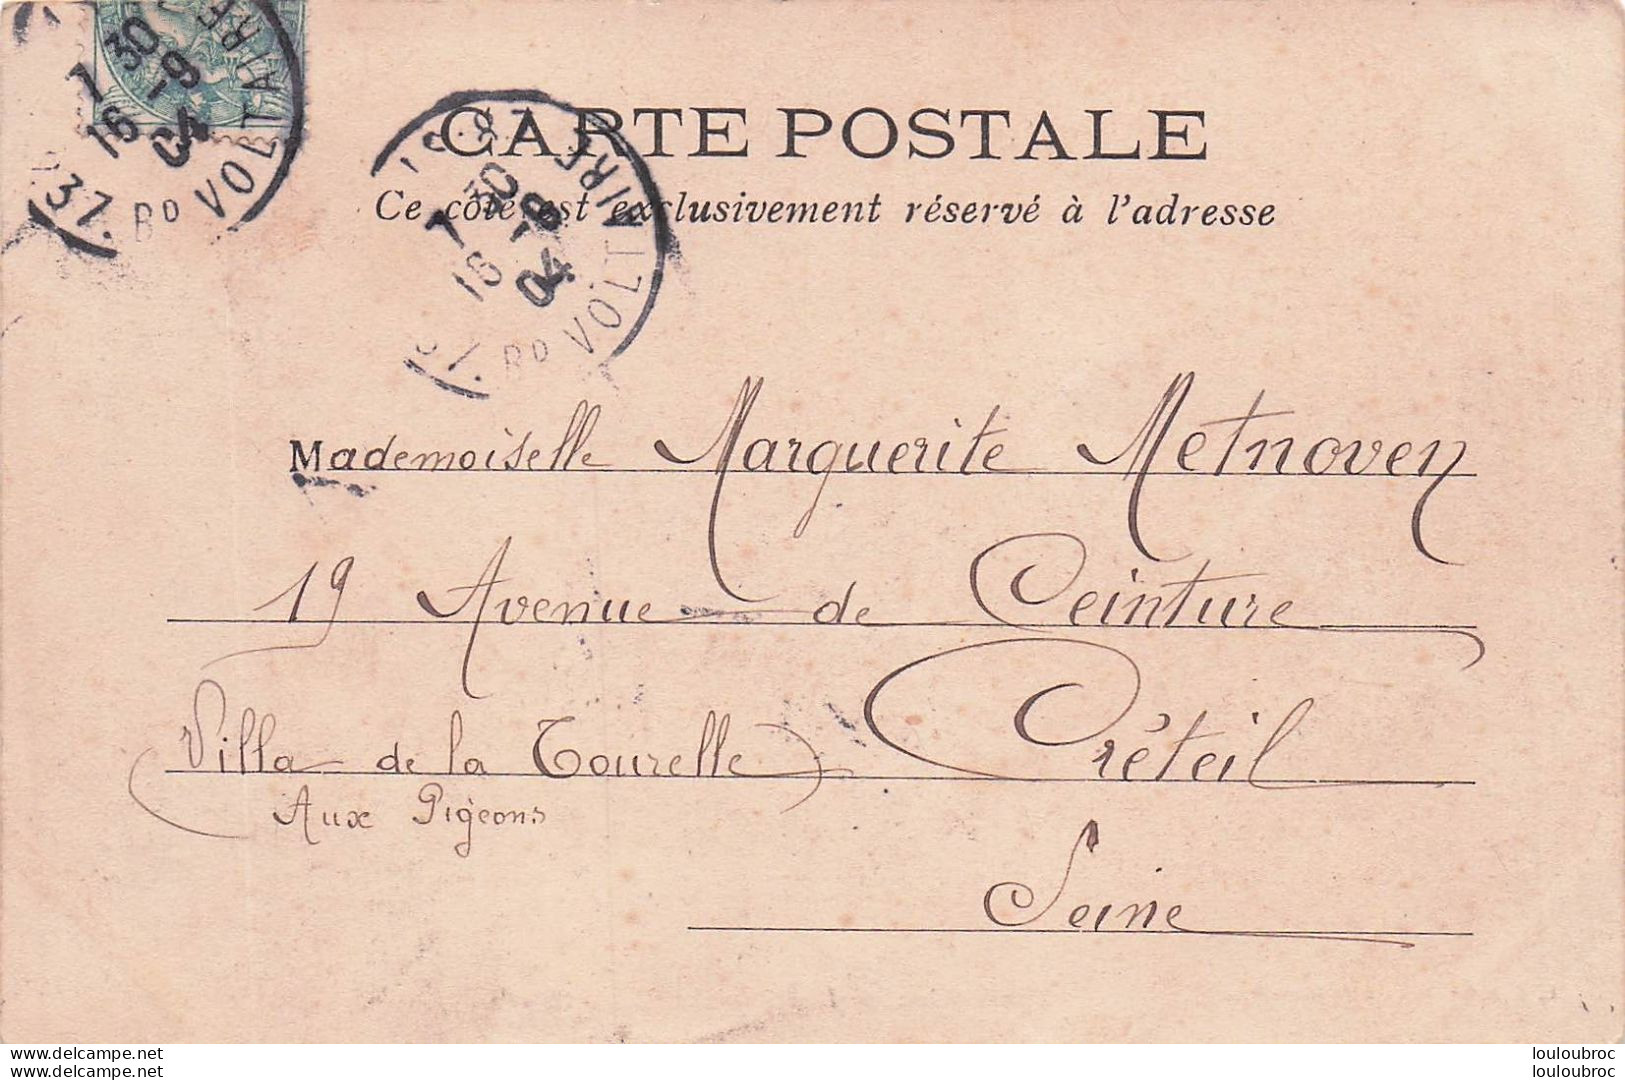 CARTE POSTALE
Ce côté est exclusivement réservé à l'adresse
7 30
16 -9
04
37. BD VOLTAIRE
7 30
16 -9
04
BD VOLTAIRE
Mademoiselle Marguerite Metnoven
19 Avenue de Ceinture
Villa de la Tourelle Créteil
Aux Pigeons
Seine
www.delcampe.net
www.delcampe.net
louloubroc
louloubroc